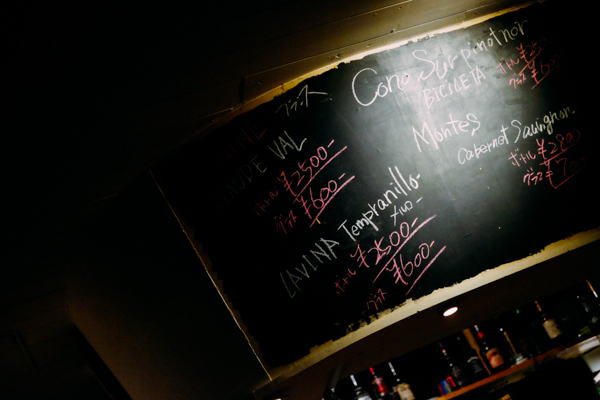 グラス
CLAUDE VAL
ボトル ¥2500-
グラス ¥600-
LAVINA Tempranillo
ボトル ¥2500-
グラス ¥600-
Cono Sur pinot noir
BICICLETA
ボトル
グラス
Montes
Cabernet Sauvignon
ボトル ¥2800
グラス